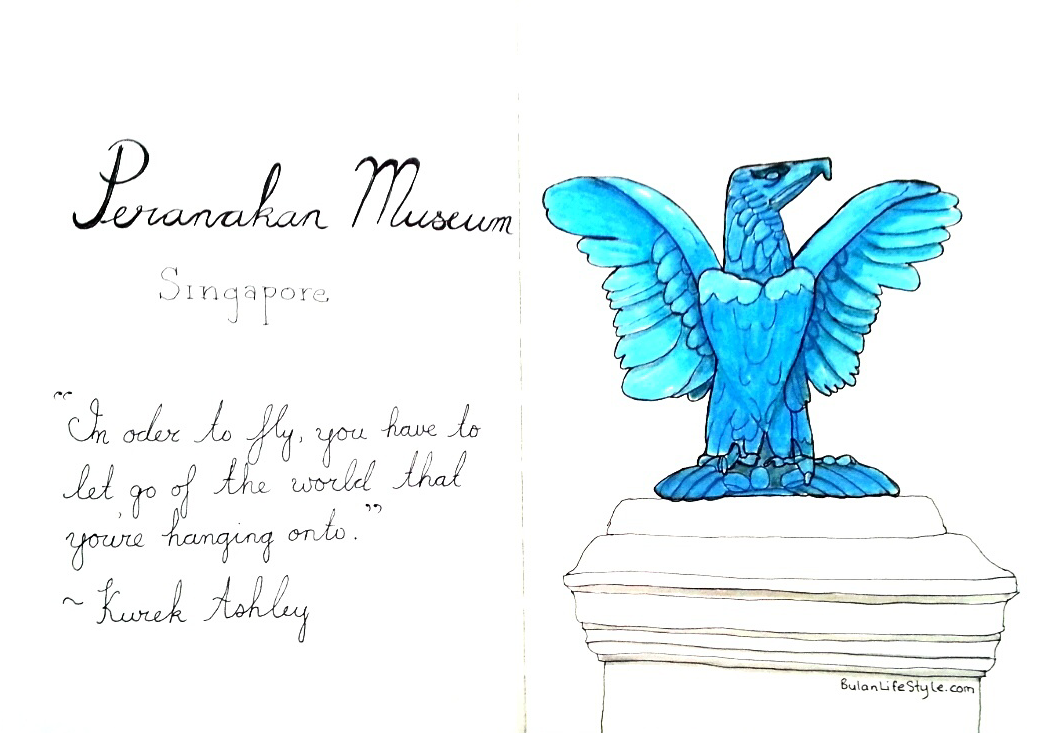 Peranakan Museum
Singapore
"In oder to fly, you have to
let go of the world that
you're hanging onto."
~ Kurek Ashley
BulanLifeStyle.com